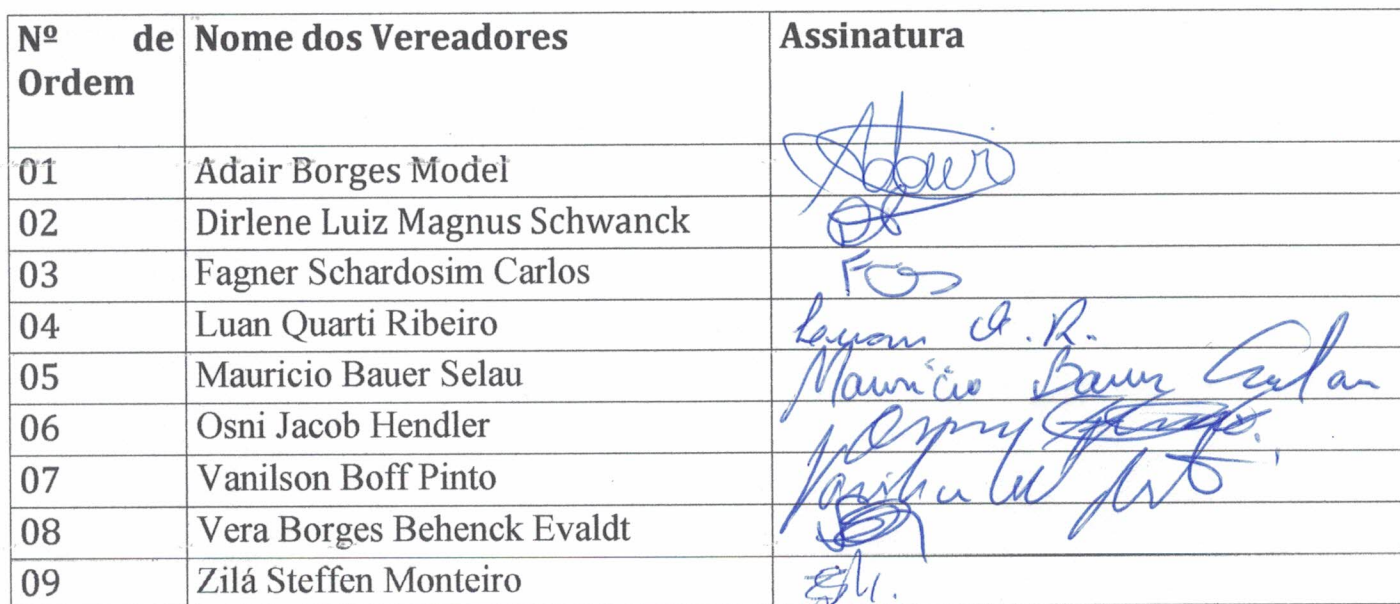 Nº de Nome dos Vereadores Assinatura
Ordem
01 Adair Borges Model Adair
02 Dirlene Luiz Magnus Schwanck
03 Fagner Schardosim Carlos
04 Luan Quarti Ribeiro Luan Q. R.
05 Mauricio Bauer Selau Mauricio Bauer Selau
06 Osni Jacob Hendler
07 Vanilson Boff Pinto
08 Vera Borges Behenck Evaldt
09 Zilá Steffen Monteiro